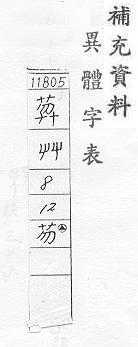 補充資料
異體字表
11805
艸
8
12